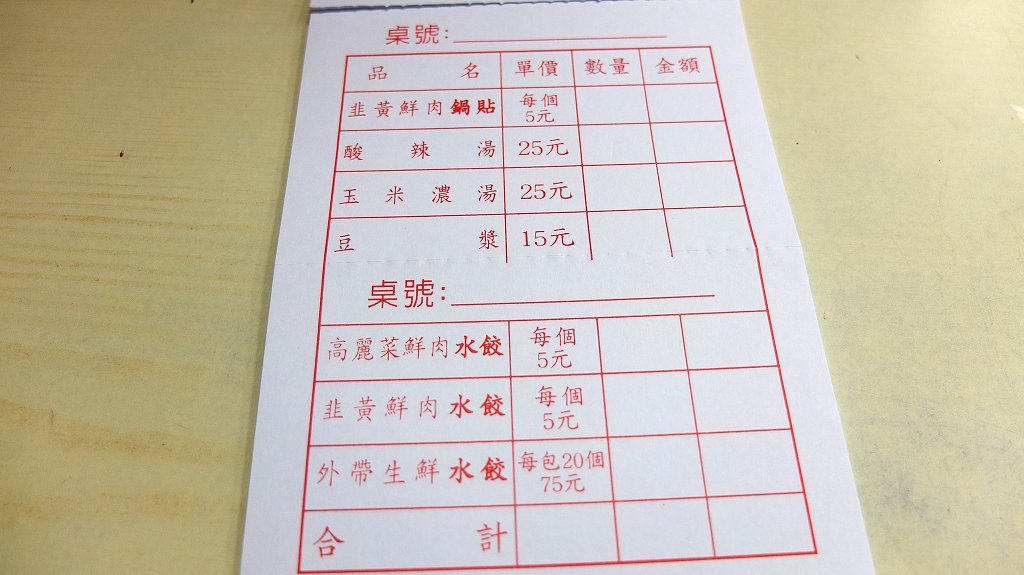 桌號:
品名 單價 數量 金額
韭黃鮮肉鍋貼 每個5元
酸辣湯 25元
玉米濃湯 25元
豆漿 15元
桌號:
高麗菜鮮肉水餃 每個5元
韭黃鮮肉水餃 每個5元
外帶生鮮水餃 每包20個75元
合計